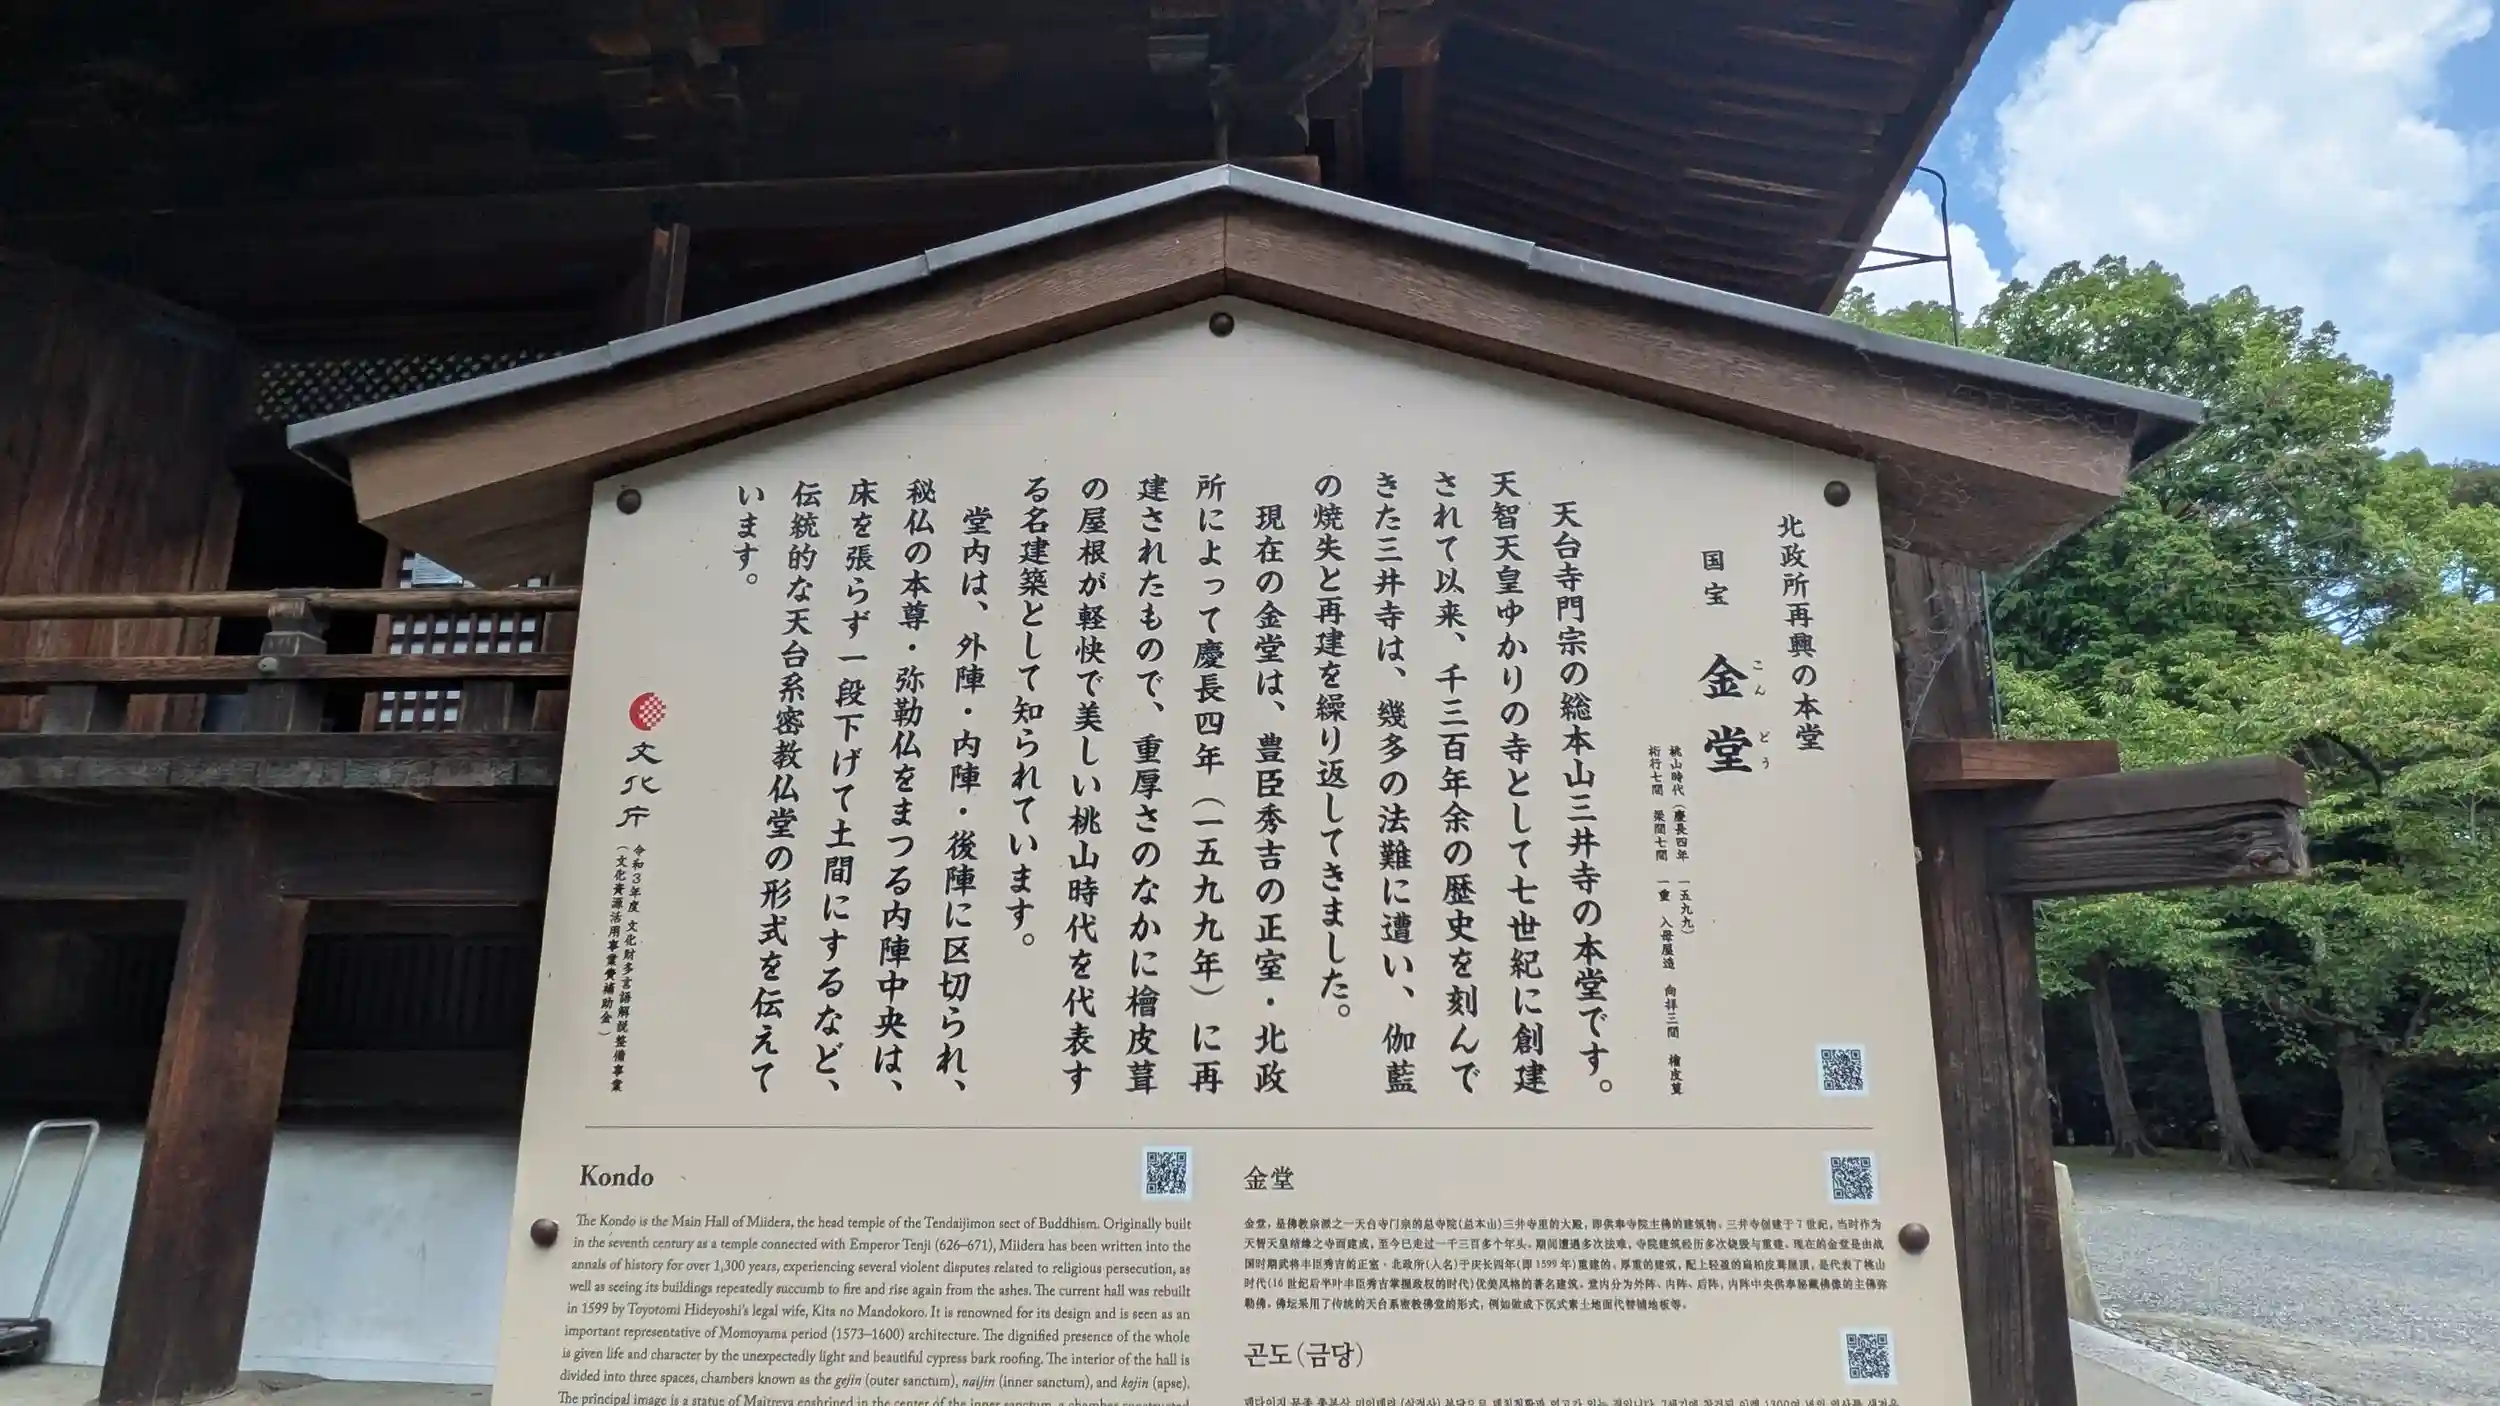 北政所再興の本堂
国宝 金堂
こんどう
桃山時代(慶長四年 一五九九)
桁行七間 梁間七間 一重 入母屋造 向拝三間 檜皮葺
天台寺門宗の総本山三井寺の本堂です。
天智天皇ゆかりの寺として七世紀に創建
されて以来、千三百年余の歴史を刻んで
きた三井寺は、幾多の法難に遭い、伽藍
の焼失と再建を繰り返してきました。
現在の金堂は、豊臣秀吉の正室・北政
所によって慶長四年(一五九九年)に再
建されたもので、重厚さのなかに檜皮葺
の屋根が軽快で美しい桃山時代を代表す
る名建築として知られています。
堂内は、外陣・内陣・後陣に区切られ、
秘仏の本尊・弥勒仏をまつる内陣中央は、
床を張らず一段下げて土間にするなど、
伝統的な天台系密教仏堂の形式を伝えて
います。
文化庁
令和3年度 文化財多言語解説整備事業
(文化資源活用事業費補助金)
Kondo
The Kondo is the Main Hall of Miidera, the head temple of the Tendaijimon sect of Buddhism. Originally built
in the seventh century as a temple connected with Emperor Tenji (626–671), Miidera has been written into the
annals of history for over 1,300 years, experiencing several violent disputes related to religious persecution, as
well as seeing its buildings repeatedly succumb to fire and rise again from the ashes. The current hall was rebuilt
in 1599 by Toyotomi Hideyoshi's legal wife, Kita no Mandokoro. It is renowned for its design and is seen as an
important representative of Momoyama period (1573–1600) architecture. The dignified presence of the whole
is given life and character by the unexpectedly light and beautiful cypress bark roofing. The interior of the hall is
divided into three spaces, chambers known as the gejin (outer sanctum), naijin (inner sanctum), and kojin (apse).
The principal image is a statue of Maitreya enshrined in the center of the inner sanctum, a chamber constructed
金堂
金堂，是佛教宗派之一天台寺门宗的总寺院(总本山)三井寺里的大殿，即供奉寺院主佛的建筑物。三井寺创建于7世纪，当时作为
天智天皇结缘之寺而建成，至今已走过一千三百多个年头。期间遭遇多次法难，寺院建筑经历多次烧毁与重建。现在的金堂是由战
国时期武将丰臣秀吉的正室・北政所(人名)于庆长四年(即1599年)重建的。厚重的建筑，配上轻盈的扁柏皮葺屋顶，是代表了桃山
时代(16世纪后半叶丰臣秀吉掌握政权的时代)优美风格的著名建筑。堂内分为外阵、内阵、后阵，内阵中央供奉秘藏佛像的主佛弥
勒佛。佛坛采用了传统的天台系密教佛堂的形式，例如做成下沉式素土地面代替铺地板等。
곤도(금당)